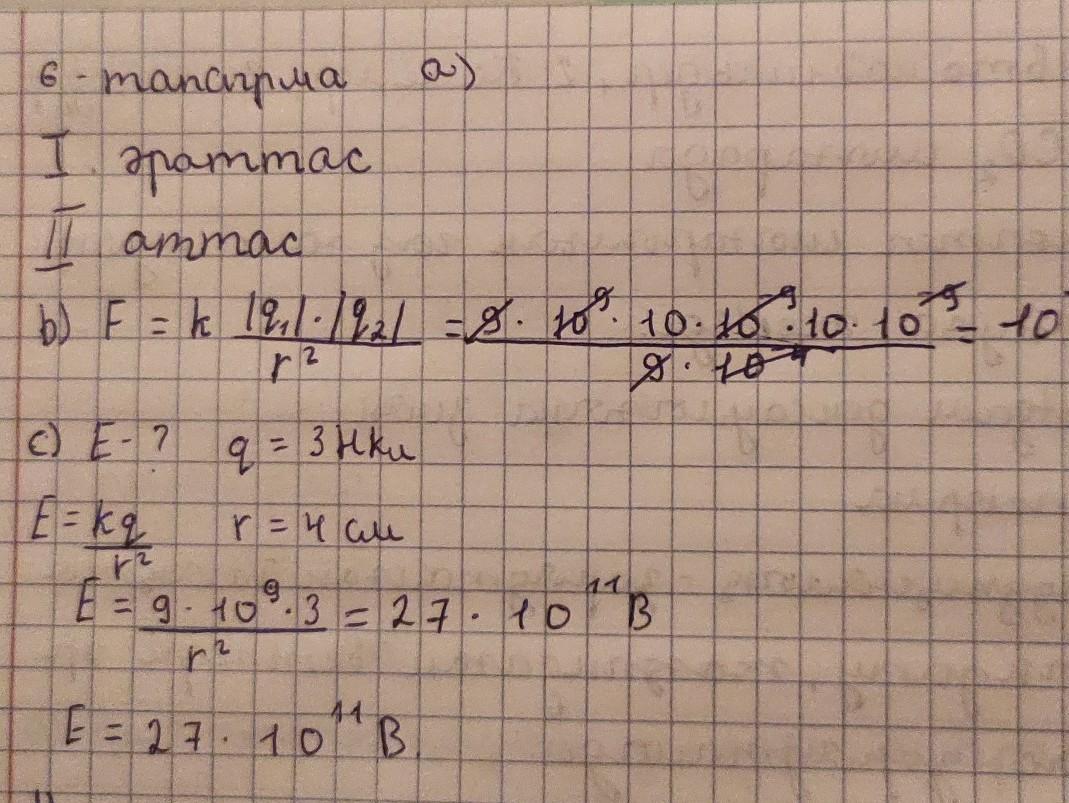 6-тапсырма a)
I әраттас
II аттас
b) F = k |q₁|·|q₂| / r² = 9·10⁹·10·10⁻⁹·10·10⁻⁹ / 9·10⁻⁴ = 10
c) E-? q = 3 Нкл
E = kq / r² r = 4 см
E = 9·10⁹·3 / r² = 27·10¹¹ В
E = 27·10¹¹ В